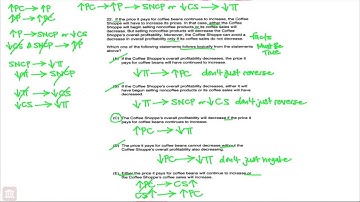 ↑PC → ↑P
↑PC → ↑P → SNCP or ↓CS → ↓π
22. If the price it pays for coffee beans continues to increase, the Coffee
Shoppe will have to increase its prices. In that case, either the Coffee
Shoppe will begin selling noncoffee products or its coffee sales will
decrease. But selling noncoffee products will decrease the Coffee
Shoppe's overall profitability. Moreover, the Coffee Shoppe can avoid a
decrease in overall profitability only if its coffee sales do not decrease.
Which one of the following statements follows logically from the statements
above?
Facts
Must Be
True
↑P → SNCP or ↓CS
SNCP → ↓π
↓CS → ↓π
(A) If the Coffee Shoppe's overall profitability decreases, the price it
pays for coffee beans will have continued to increase.
↓π → ↑PC don't just reverse
(B) If the Coffee Shoppe's overall profitability decreases, either it will
have begun selling noncoffee products or its coffee sales will have
decreased.
↓π → SNCP or ↓CS don't just reverse
(C) The Coffee Shoppe's overall profitability will decrease if the price it
pays for coffee beans continues to increase.
↑PC → ↓π
(D) The price it pays for coffee beans cannot decrease without the
Coffee Shoppe's overall profitability also decreasing.
↓PC → ↓π don't just negate
(E) Either the price it pays for coffee beans will continue to increase or
the Coffee Shoppe's coffee sales will increase.
↑PC → CS↑
CS↑ → ↑PC